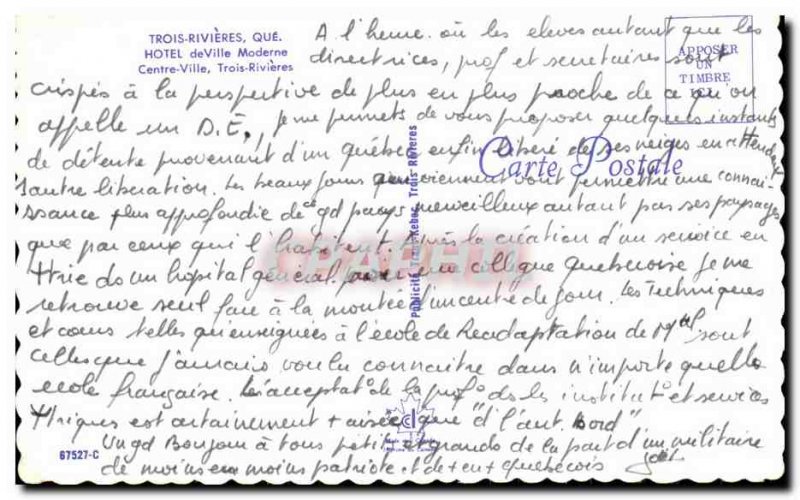 TROIS-RIVIÈRES, QUÉ.
HOTEL deVille Moderne
Centre-Ville, Trois-Rivières
APPOSER
UN
TIMBRE
ICI
A l'heure où les eleves autant que les
directrices, prof et secretaires sont
crispés à la perspective de plus en plus proche de ce qu'on
appelle un D.E., je me permets de vous proposer quelques instants
de détente provenant d'un Québec enfin libéré de ses neiges en attendant
l'autre liberation. Les beaux jours qui viennent vont permettre une connai-
ssance plus approfondie de ce gd pays merveilleux autant par ses paysages
que par ceux qui l'habitent. Après la création d'un service en
th ds un hopital général avec une collègue Quebecoise je me
retrouve seul face à la montée d'un centre de jour. Les Techniques
et cours telles qu'enseignées à l'école de Readaptation de Mal sont
celles que j'aurais voulu connaitre dans n'importe quelle
ecole française. L'acceptat° de la prof° ds les institut° et services
thiques est certainement + aisée que "d'l'aut bord"
Un gd Bonjour à tous petits et grands de la part d'un militaire
de moins en moins patriote et de + en + quebecois
Carte Postale
Publicité Trans-Kebec, Trois-Rivières
67527-C